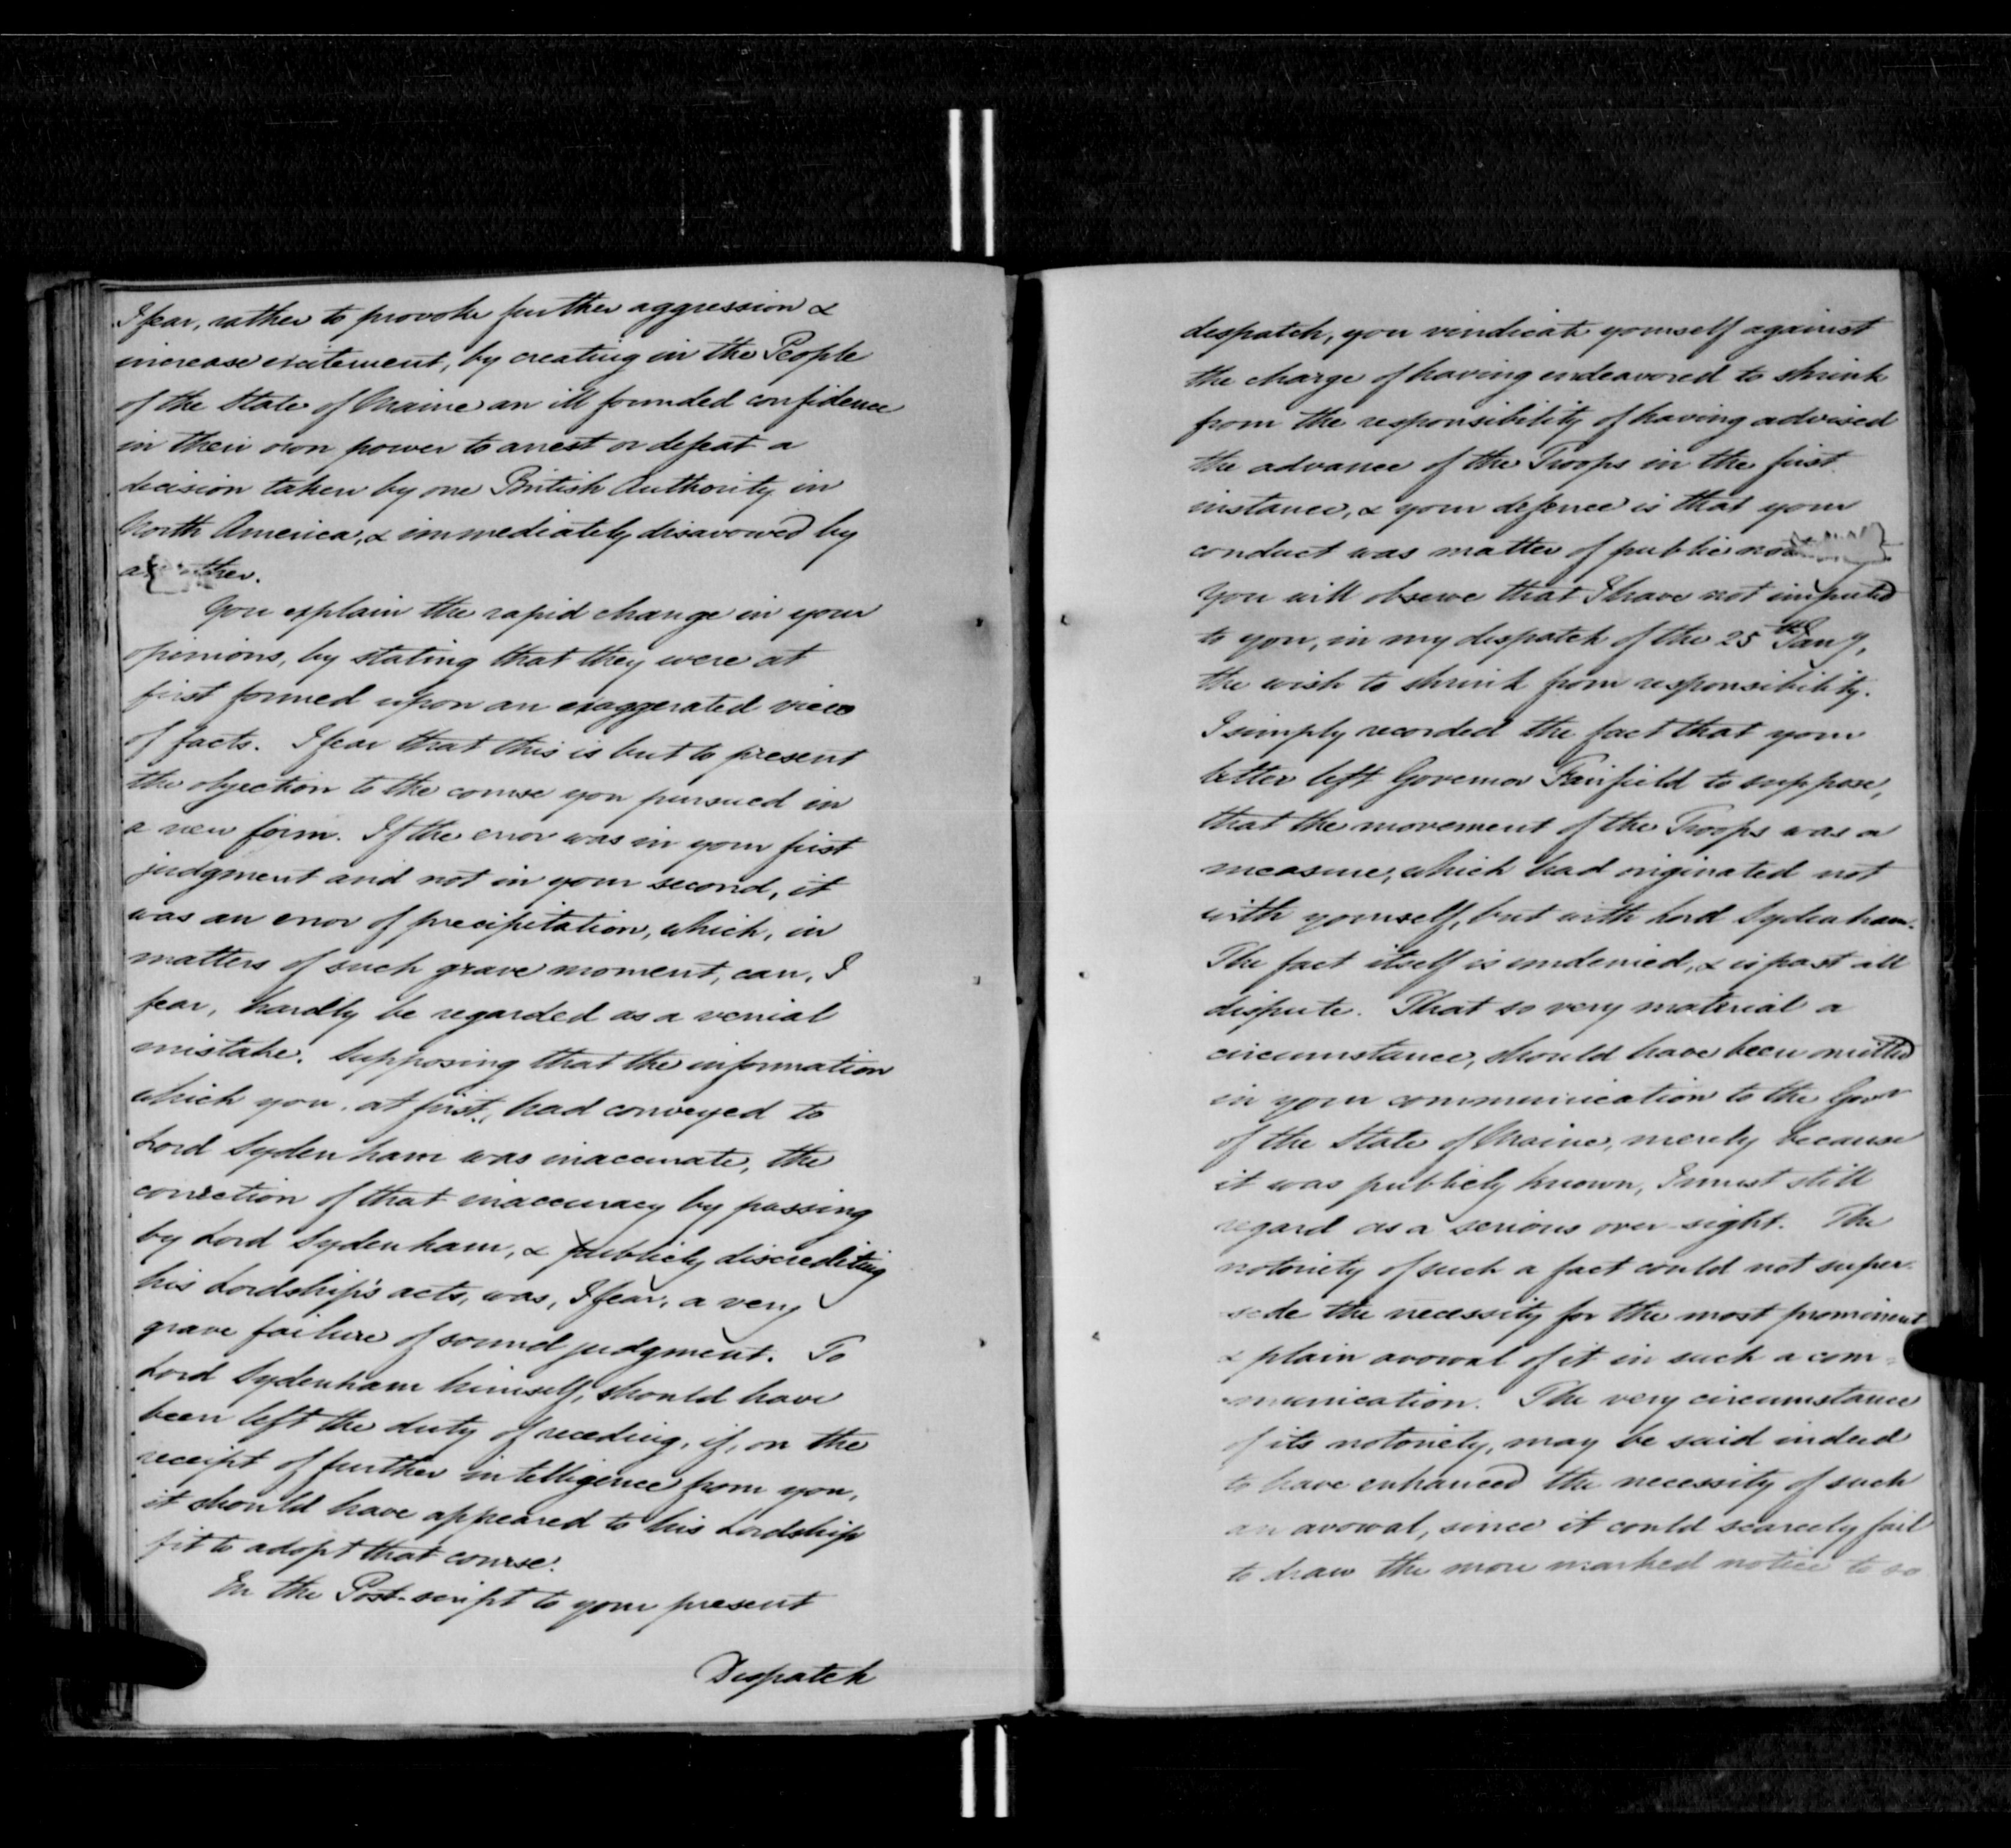 I fear, rather to provoke further aggression &
increase excitement, by creating in the People
of the State of Maine an ill founded confidence
in their own power to arrest or defeat a
decision taken by one British Authority in
North America, & immediately disavowed by
another.
You explain the rapid change in your
opinions, by stating that they were at
first formed upon an exaggerated view
of facts. I fear that this is but to present
the objection to the course you pursued in
a new form. If the error was in your first
judgment and not in your second, it
was an error of precipitation, which, in
matters of such grave moment, can, I
fear, hardly be regarded as a venial
mistake. Supposing that the information
which you, at first, had conveyed to
Lord Sydenham was inaccurate, the
correction of that inaccuracy by passing
by Lord Sydenham, & publicly discrediting
his Lordship's acts, was, I fear, a very
grave failure of sound judgment. To
Lord Sydenham himself, should have
been left the duty of receding, if, on the
receipt of further intelligence from you,
it should have appeared to his Lordship
fit to adopt that course.
In the Post-script to your present
Despatch
despatch, you vindicate yourself against
the charge of having endeavored to shrink
from the responsibility of having advised
the advance of the Troops in the first
instance, & your defence is that your
conduct was matter of public
You will observe that I have not imputed
to you, in my despatch of the 25th Jany,
the wish to shrink from responsibility.
I simply recorded the fact that your
letter left Governor Fairfield to suppose,
that the movement of the Troops was a
measure, which had originated not
with yourself, but with Lord Sydenham.
The fact itself is undenied, & is past all
dispute. That so very material a
circumstance, should have been omitted
in your communication to the Govr
of the State of Maine, merely because
it was publicly known, I must still
regard as a serious over-sight. The
notoriety of such a fact could not super-
sede the necessity for the most prominent
& plain avowal of it in such a com-
munication. The very circumstance
of its notoriety, may be said indeed
to have enhanced the necessity of such
an avowal, since it could scarcely fail
to draw the more marked notice to so